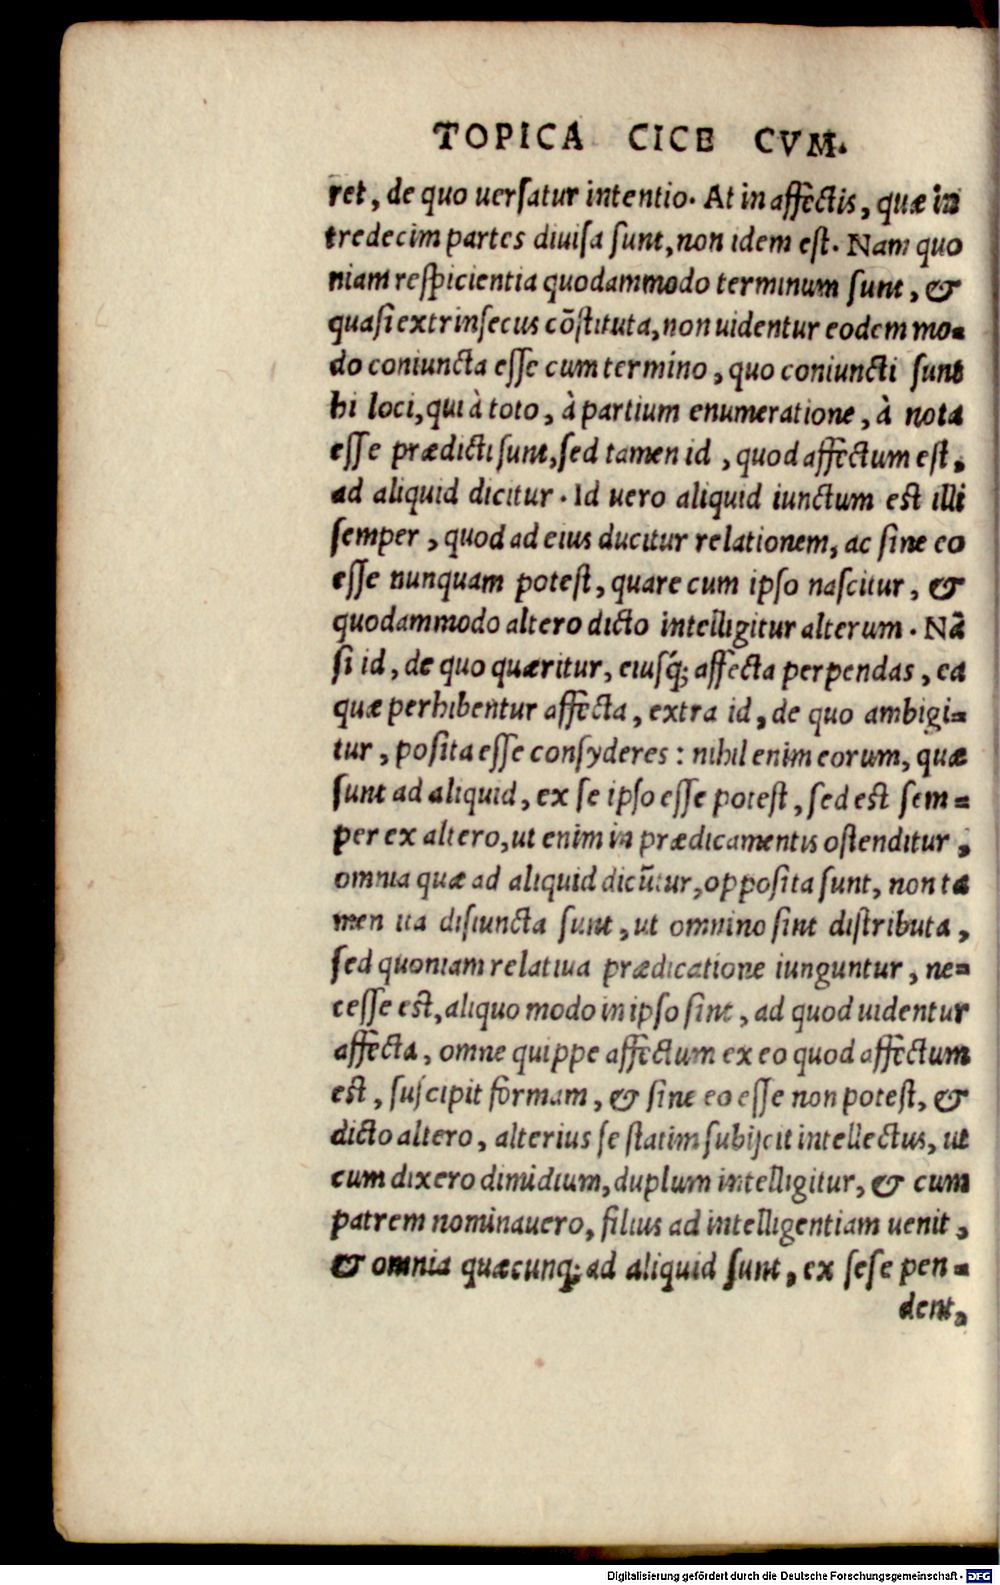 TOPICA CICE CVM.
ret, de quo uersatur intentio. At in affectis, quæ in
tredecim partes diuisa sunt, non idem est. Nam quo
niam respicientia quodammodo terminum sunt, &
quasi extrinsecus cōstituta, non uidentur eodem mo-
do coniuncta esse cum termino, quo coniuncti sunt
hi loci, qui à toto, à partium enumeratione, à nota
esse prædicti sunt, sed tamen id, quod affectum est,
ad aliquid dicitur. Id uero aliquid iunctum est illi
semper, quod ad eius ducitur relationem, ac sine eo
esse nunquam potest, quare cum ipso nascitur, &
quodammodo altero dicto intelligitur alterum. Nā
si id, de quo quæritur, eiusq́; affecta perpendas, ea
quæ perhibentur affecta, extra id, de quo ambigi-
tur, posita esse consyderes: nihil enim eorum, quæ
sunt ad aliquid, ex se ipso esse potest, sed est sem-
per ex altero, ut enim in prædicamentis ostenditur,
omnia quæ ad aliquid dicūtur, opposita sunt, non ta
men ita disiuncta sunt, ut omnino sint distributa,
sed quoniam relatiua prædicatione iunguntur, ne-
cesse est, aliquo modo in ipso sint, ad quod uidentur
affecta, omne quippe affectum ex eo quod affectum
est, suscipit formam, & sine eo esse non potest, &
dicto altero, alterius se statim subijcit intellectus, ut
cum dixero dimidium, duplum intelligitur, & cum
patrem nominauero, filius ad intelligentiam uenit,
& omnia quæcunq; ad aliquid sunt, ex sese pen-
dent,
Digitalisierung gefördert durch die Deutsche Forschungsgemeinschaft - DFG